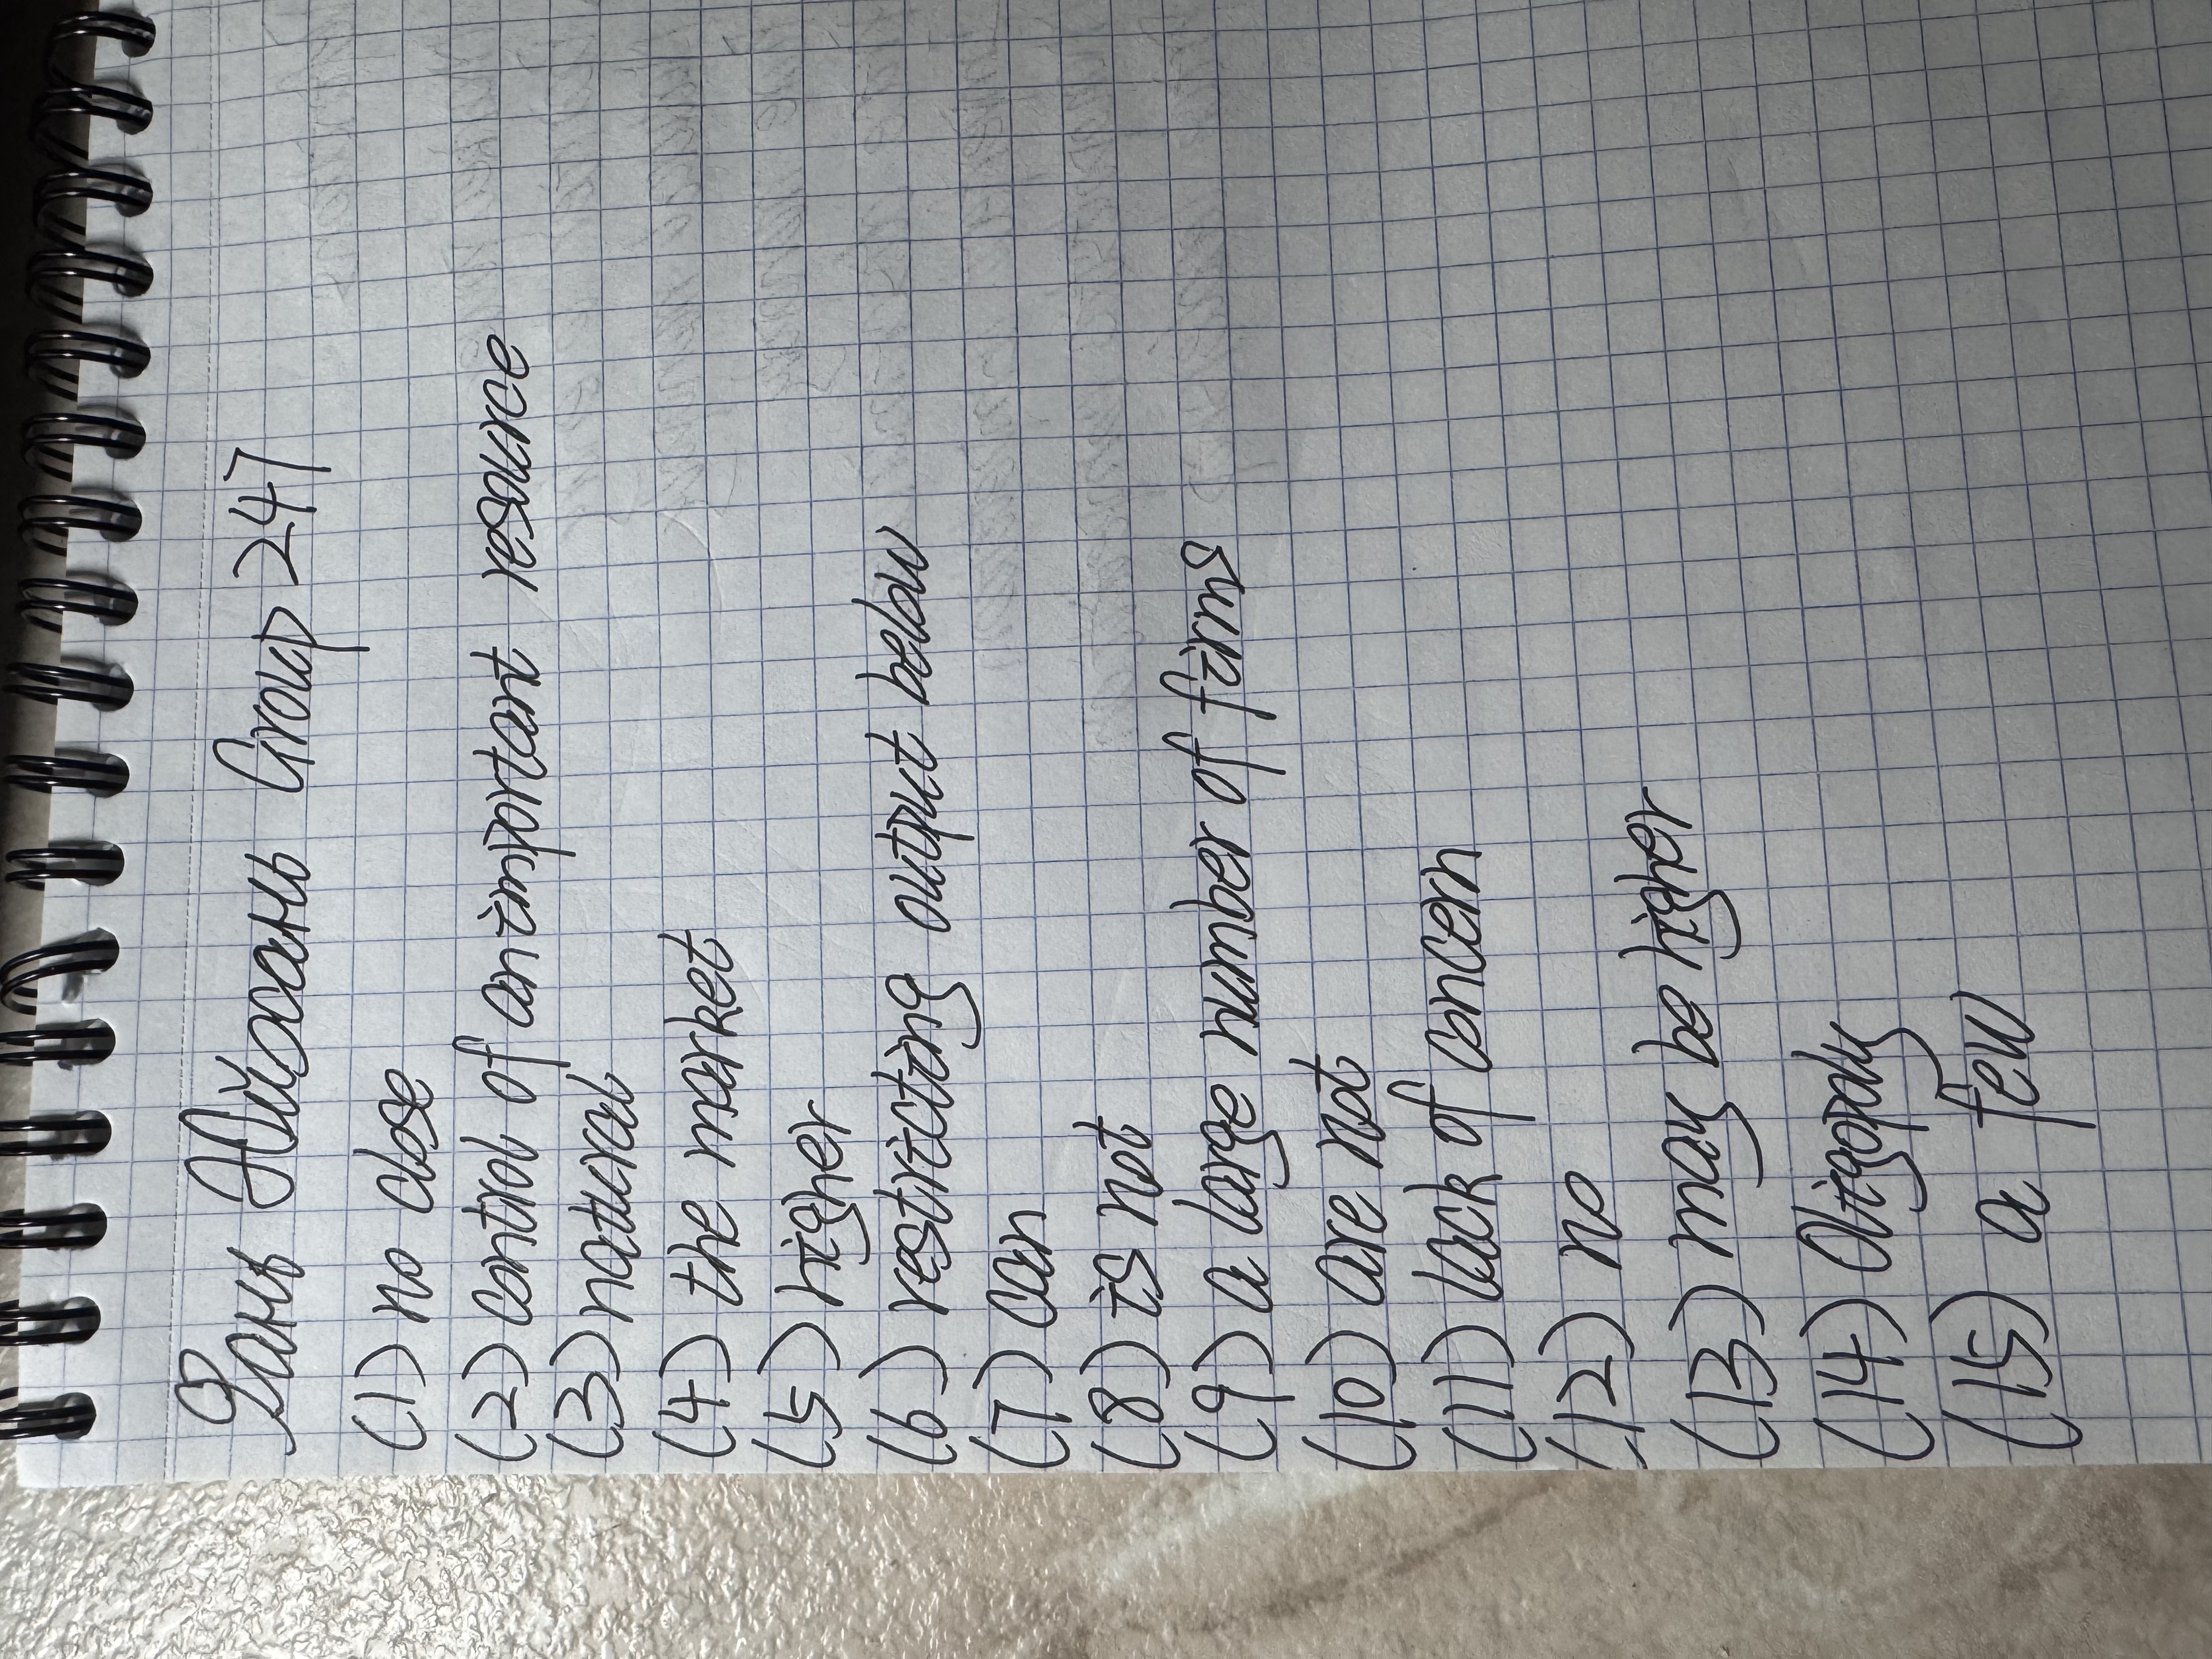 Фань Айюань Group 247
(1) no close
(2) control of an important resource
(3) natural
(4) the market
(5) higher
(6) restricting output below
(7) can
(8) is not
(9) a large number of firms
(10) are not
(11) lack of concern
(12) no
(13) may be higher
(14) Oligopoly
(15) a few